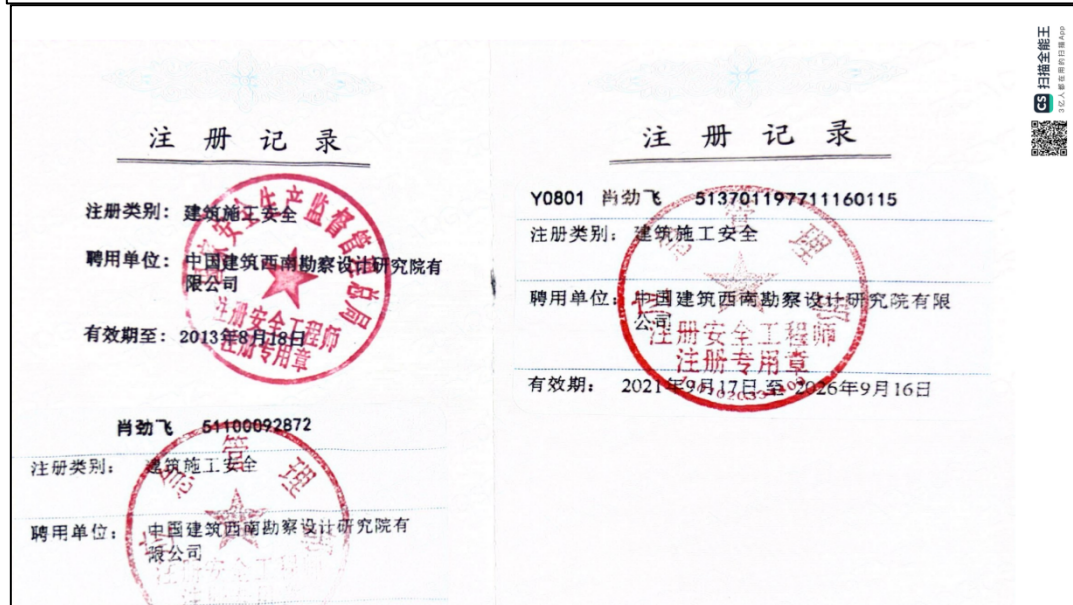 注册记录
注册类别: 建筑施工安全
聘用单位: 中国建筑西南勘察设计研究院有
限公司
有效期至: 2013年8月18日
国家安全生产监督管理总局
注册安全工程师
注册专用章
肖劲飞 51100092872
注册类别: 建筑施工安全
聘用单位: 中国建筑西南勘察设计研究院有
限公司
应急管理部
注册记录
Y0801 肖劲飞 513701197711160115
注册类别: 建筑施工安全
聘用单位: 中国建筑西南勘察设计研究院有限
公司
有效期: 2021年9月17日 至 2026年9月16日
应急管理部
注册安全工程师
注册专用章
CS 扫描全能王
3亿人都在用的扫描App